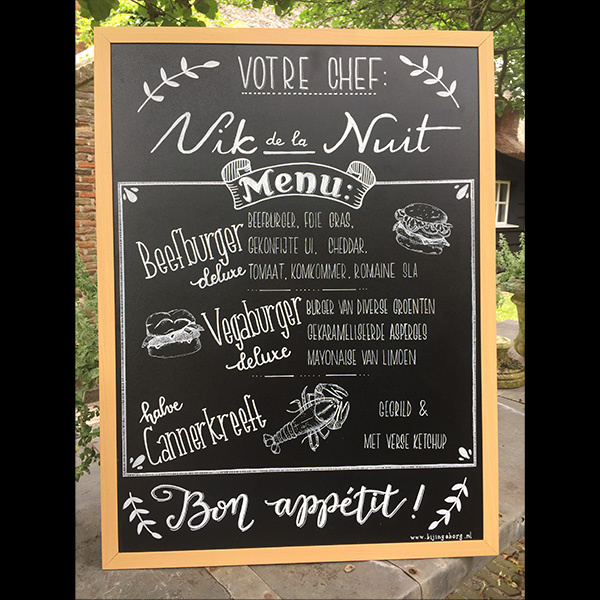 VOTRE CHEF:
Nik de la Nuit
Menu:
Beefburger deluxe
BEEFBURGER, FOIE GRAS,
GEKONFIJTE UI, CHEDDAR,
TOMAAT, KOMKOMMER, ROMAINE SLA
Vegaburger deluxe
BURGER VAN DIVERSE GROENTEN
GEKARAMELISEERDE ASPERGES
MAYONAISE VAN LIMOEN
halve
Cannerkreeft
GEGRILD &
MET VERSE KETCHUP
Bon appétit!
www.bijingeborg.nl